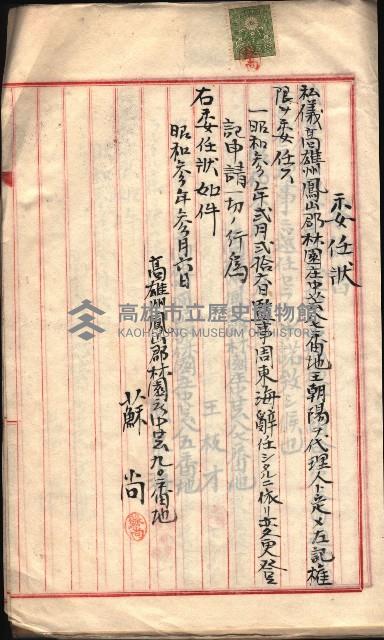 委任狀
私儀高雄州鳳山郡林園庄中芸八七番地王朝陽ヲ代理人ト定メ左記權
限ヲ委任ス
一昭和參年弍月弍拾六日監事周東海辭任シタルニ依リ變更登
記申請一切ノ行爲
右委任狀如件
昭和參年參月六日
高雄州鳳山郡林園庄中芸九〇番地
蘇尚
高雄市立歷史博物館
KAOHSIUNG MUSEUM OF HISTORY